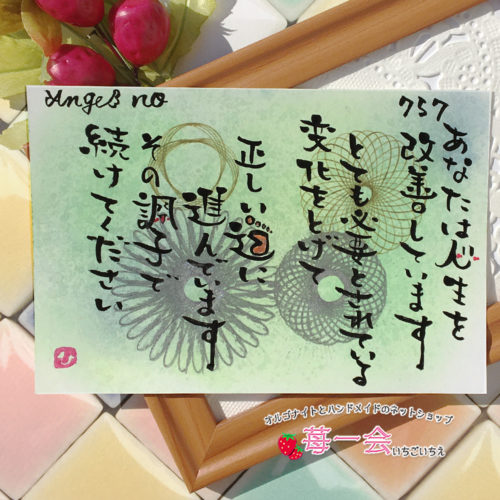 Angel's no
757
あなたは人生を
改善しています
とても必要とされている
変化をとげて
正しい道に
進んでいます
その調子で
続けてください
オルゴナイトとハンドメイドのネットショップ
苺一会いちごいちえ